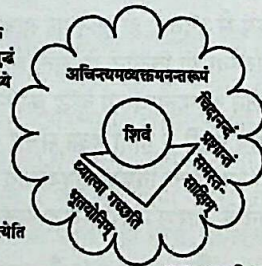 अचिन्त्यमव्यक्तमनन्तरूपं
शिवं
चिदानन्दं
प्रशान्तं
समस्त-
साक्षिम्
ध्यात्वा गच्छति
भूतयोनिम्